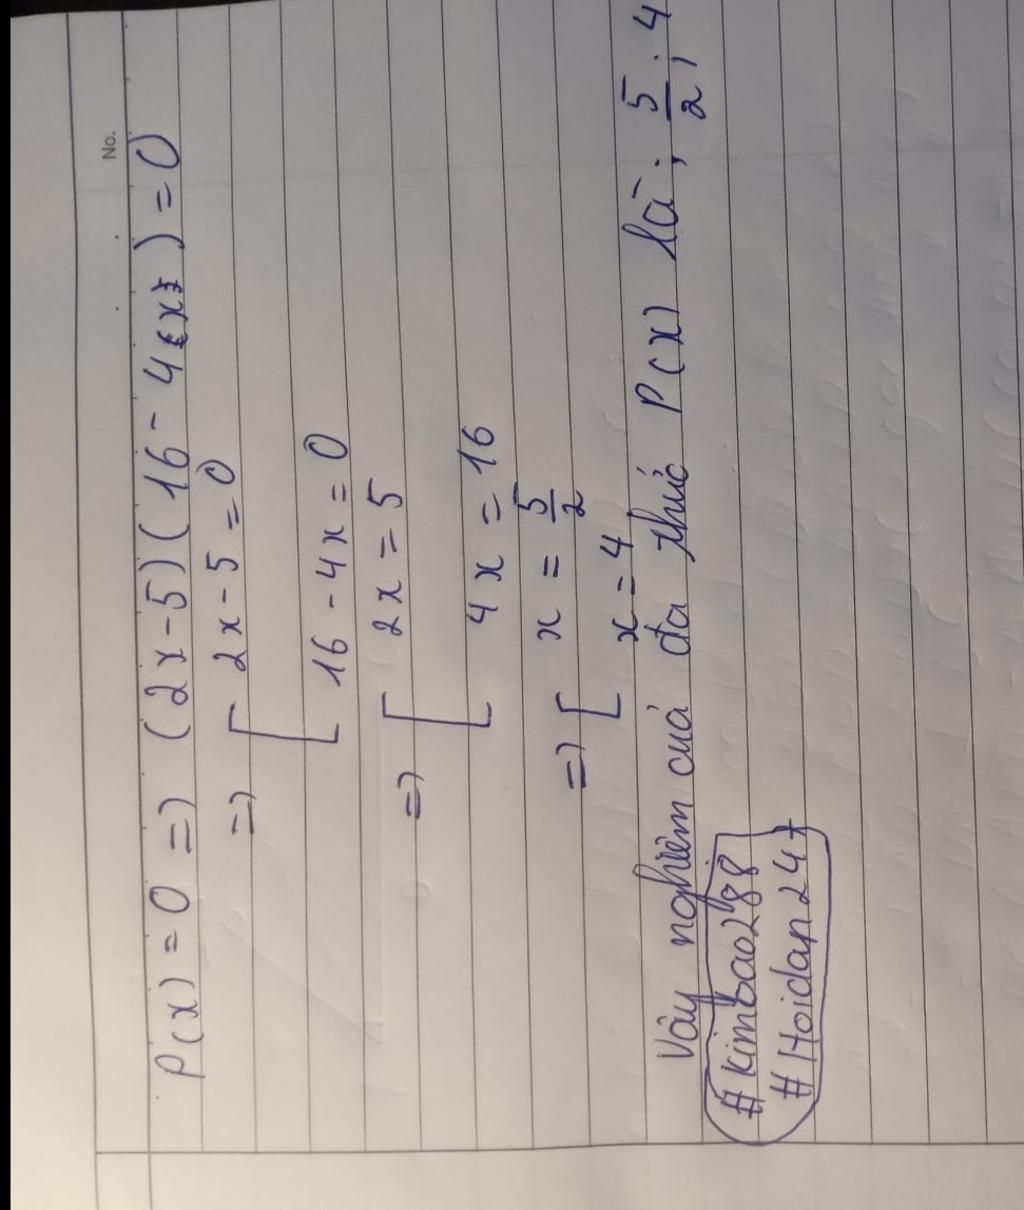 No.
P(x) = 0 => (2x-5)(16-4x) = 0
=> [ 2x-5=0
[ 16-4x=0
=> [ 2x=5
[ 4x=16
=> [ x=5/2
[ x=4
Vậy nghiệm của đa thức P(x) là: 5/2; 4
#kimbao288
#Hoidan247